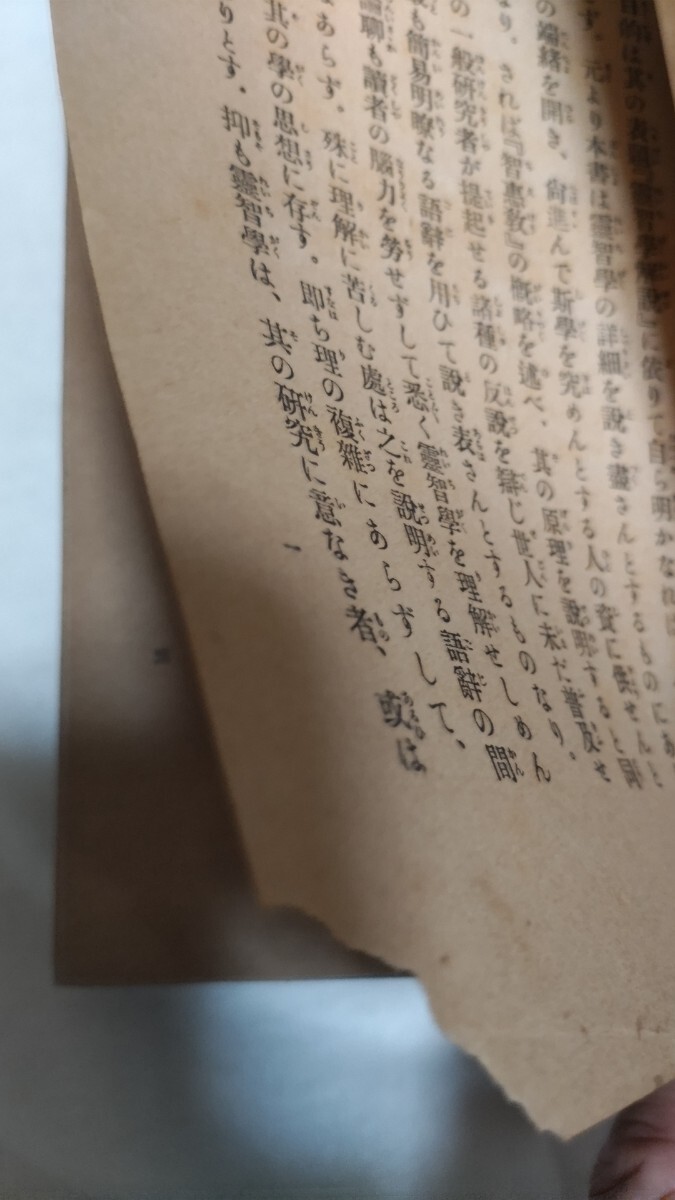 目的は其の表題『靈智學解說』に依りて自ら明かなれば
らず。元より本書は靈智學の詳細を說き盡さんとするものにあ
の端緒を開き、尙進んで斯學を究めんとする人の資に供せんと
なり。されば『智惠敎』の槪略を述べ、其の原理を說明すると同
の一般硏究者が提起せる諸種の反說を辯じ世人に未だ普及せ
最も簡易明瞭なる語辭を用ひて說き表さんとするものなり。
論聊も讀者の腦力を勞せずして悉く靈智學を理解せしめん
あらず。殊に理解に苦しむ處は之を說明する語辭の間
其の學の思想に存す。卽ち理の複雜にあらずして、
りとす。抑も靈智學は、其の硏究に意なき者、或は
一